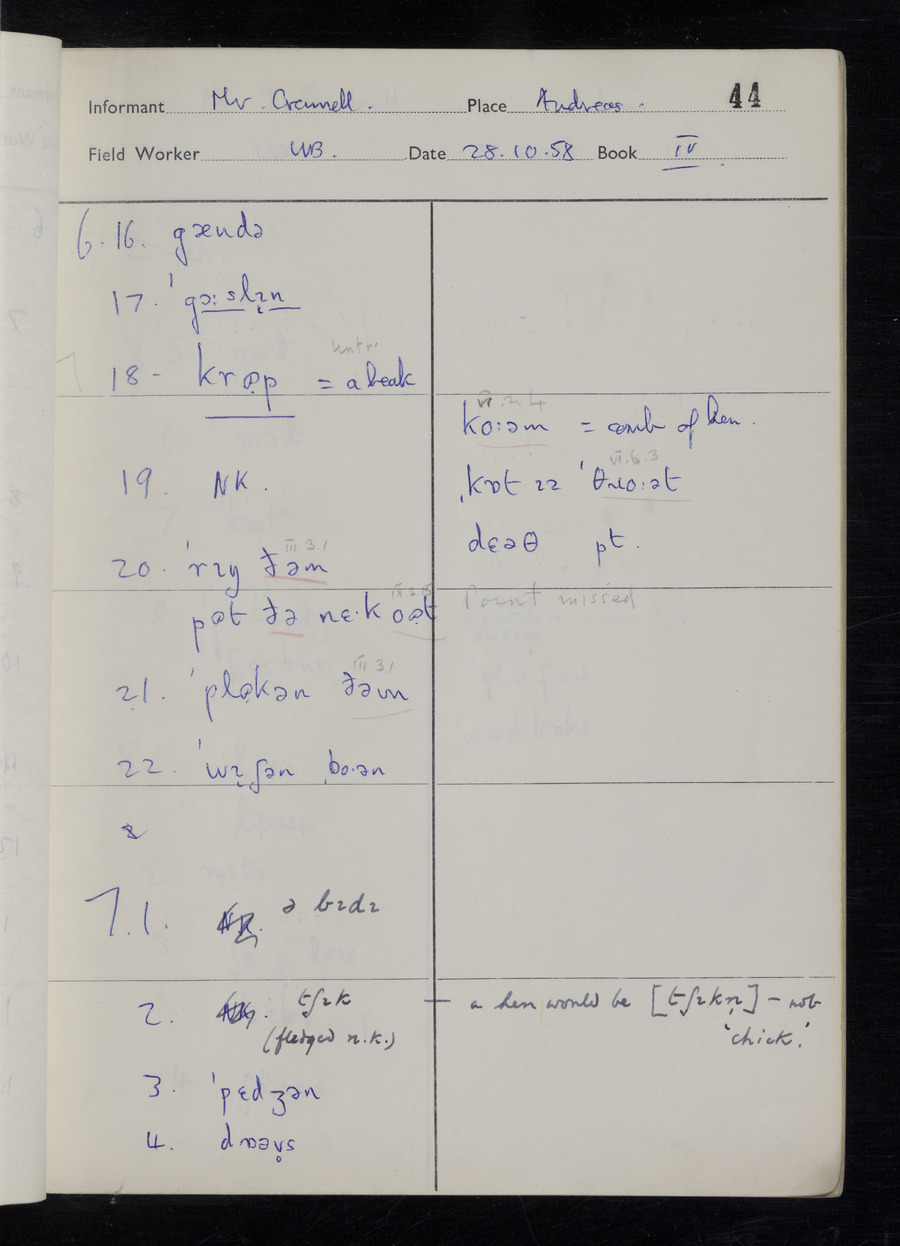 Informant Mr. Crennell. Place Andreas. 44
Field Worker WB. Date 28.10.58 Book IV
6.16. gændə
17. ˈgɔ:slɪn
18- krɒp = a beak
VI.2.4
ko:əm = comb of hen.
19. NK.
VI.6.3
ˌkɒt ɪz ˈθɹo:ət
dɛəθ pt.
III.3.1
20. ˈrɪŋ ðəm
IX.2.15
pət ðə nɛ·k
Point missed
III 3.1
21. ˈpləkən ðəm
22. ˈwɪʃən ˌbo·ən
7.1. NK. ə bɪdɪ
2. NK. tʃɪk — a hen would be [tʃɪkn̩] – not
(fledged n.k.) 'chick.'
3. ˈpɛdʒən
4.